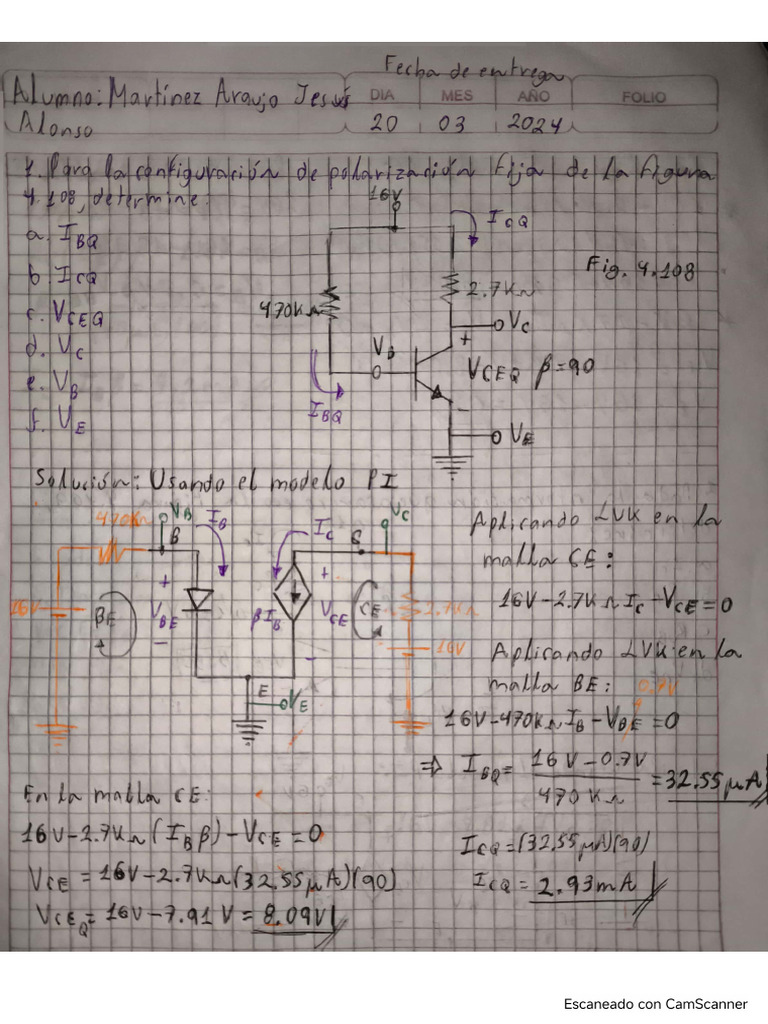 Fecha de entrega
Alumno: Martínez Araujo Jesús
Alonso
DIA MES AÑO FOLIO
20 03 2024
1. Para la configuración de polarización fija de la figura
4.108, determine:
a. I_BQ
b. I_CQ
c. V_CEQ
d. V_C
e. V_B
f. V_E
16V
I_CQ
Fig. 4.108
2.7KΩ
470KΩ
V_C
+
V_B
V_CEQ β=90
I_BQ
-
V_E
Solución: Usando el modelo PI
470KΩ
V_B
B
I_B
I_C
C
V_C
16V
BE
+
+
V_BE
-
βI_B
+
V_CE
-
CE
2.7KΩ
16V
E
V_E
Aplicando LVK en la
malla CE:
16V-2.7KΩ I_C-V_CE=0
Aplicando LVK en la
malla BE:
0.7V
16V-470KΩI_B-V_BE=0
⇒ I_BQ= 16V-0.7V / 470KΩ =32.55μA
I_CQ=(32.55μA)(90)
I_CQ= 2.93mA
En la malla CE:
16V-2.7KΩ(I_Bβ)-V_CE=0
V_CE=16V-2.7KΩ(32.55μA)(90)
V_CEQ=16V-7.91V=8.09V
Escaneado con CamScanner